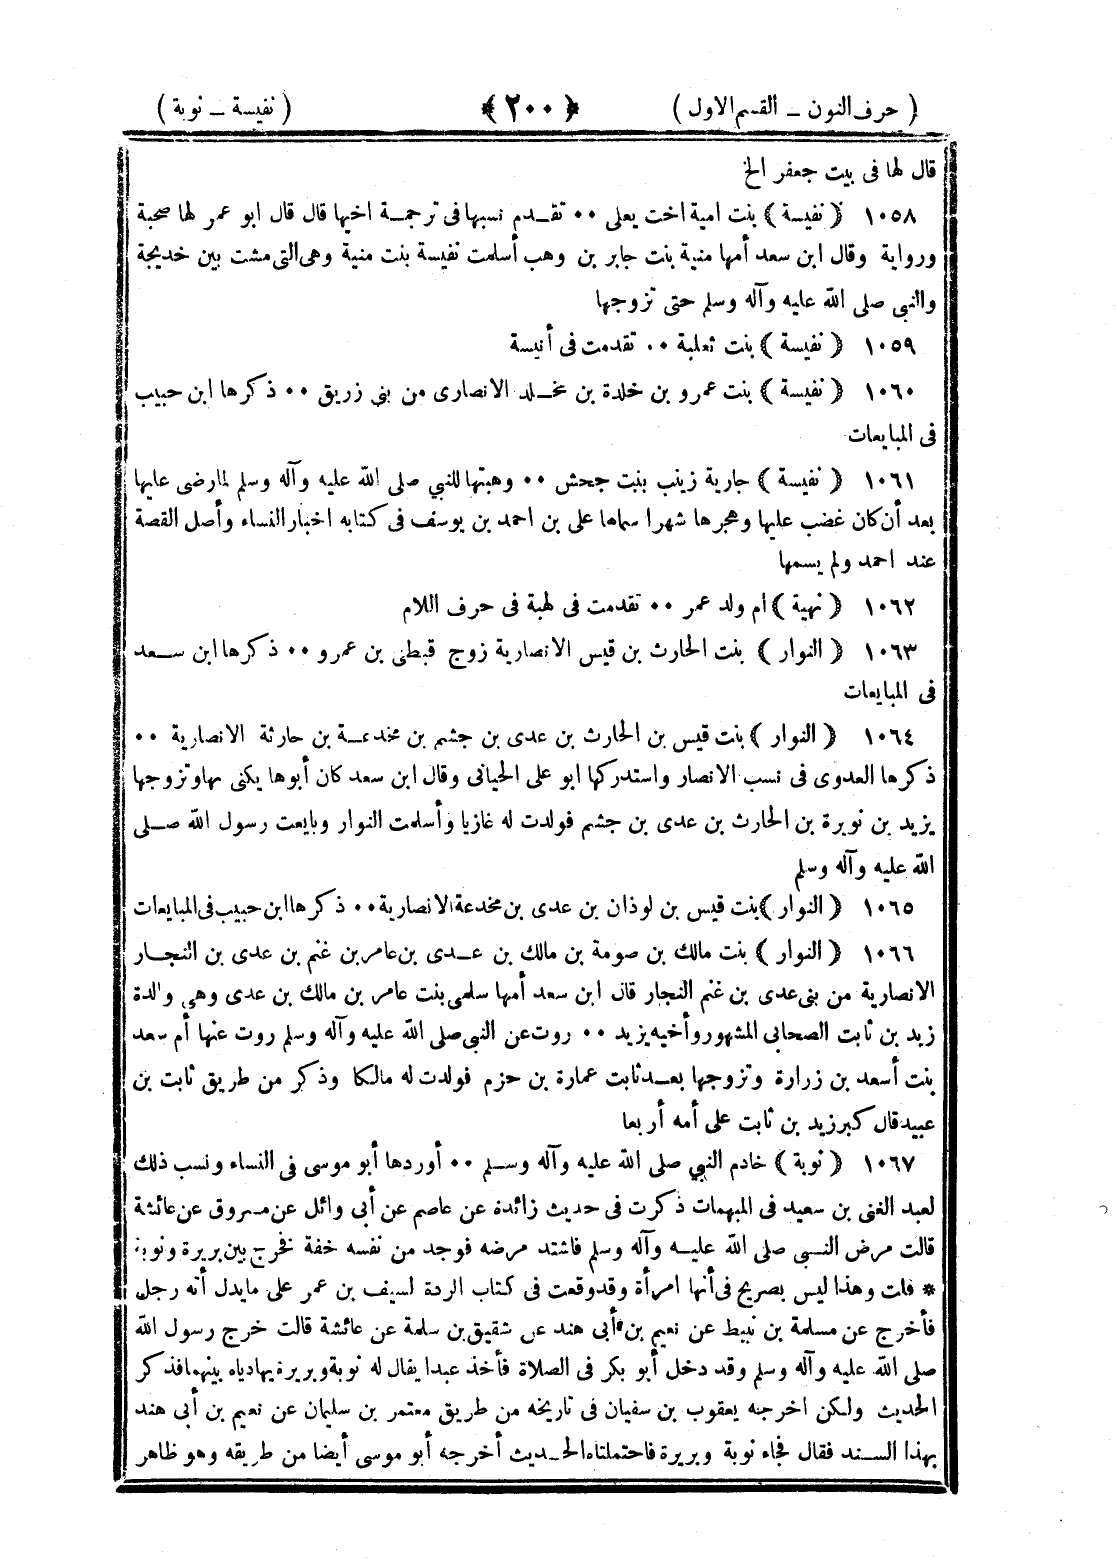 ( حرف النون ــ القسم الاول ) ﴿ ٢٠٠ ﴾ ( نفيسة ــ نوبة )
قال لها فى بيت جعفر الخ
١٠٥٨ ﴿ نفيسة ﴾ بنت امية اخت يعلى ٠٠ تقـدم نسبها فى ترجمـة اخيها قال قال ابو عمر لها صحبة
ورواية وقال ابن سعد أمها منية بنت جابر بن وهب أسلمت نفيسة بنت منية وهى التى مشت بين خديجة
والنبى صلى الله عليه وآله وسلم حتى تزوجها
١٠٥٩ ﴿ نفيسة ﴾ بنت ثعلبة ٠٠ تقدمت فى أنيسة
١٠٦٠ ﴿ نفيسة ﴾ بنت عمرو بن خلدة بن مخـلد الانصارى من بنى زريق ٠٠ ذكرها ابن حبيب
فى المبايعات
١٠٦١ ﴿ نفيسة ﴾ جارية زينب بنت جحش ٠٠ وهبتها للنبي صلى الله عليه وآله وسلم لمارضى عليها
بعد أن كان غضب عليها وهجرها شهرا سماها على بن احمد بن يوسف فى كتابه اخبار النساء وأصل القصة
عند احمد ولم يسمها
١٠٦٢ ﴿ نهية ﴾ ام ولد عمر ٠٠ تقدمت فى لهبة فى حرف اللام
١٠٦٣ ﴿ النوار ﴾ بنت الحارث بن قيس الانصارية زوج قبطى بن عمرو ٠٠ ذكرها ابن سـعد
فى المبايعات
١٠٦٤ ﴿ النوار ﴾ بنت قيس بن الحارث بن عدى بن جشم بن مخدعـة بن حارثة الانصارية ٠٠
ذكرها العدوى فى نسب الانصار واستدركها ابو على الجيانى وقال ابن سعد كان أبوها يكنى بها وتزوجها
يزيد بن نويرة بن الحارث بن عدى بن جشم فولدت له غازيا وأسلمت النوار وبايعت رسول الله صـلى
الله عليه وآله وسلم
١٠٦٥ ﴿ النوار ﴾ بنت قيس بن لوذان بن عدى بن مخدعة الانصارية ٠٠ ذكرها ابن حبيب فى المبايعات
١٠٦٦ ﴿ النوار ﴾ بنت مالك بن صومة بن مالك بن عـدى بن عامر بن غنم بن عدى بن النجـار
الانصارية من بنى عدى بن غنم النجار قال ابن سعد أمها سلمى بنت عامر بن مالك بن عدى وهى والدة
زيد بن ثابت الصحابى المشهور وأخيه يزيد ٠٠ روت عن النبى صلى الله عليه وآله وسلم روت عنها أم سعد
بنت أسعد بن زرارة وتزوجها بعـد ثابت عمارة بن حزم فولدت له مالكا وذكر من طريق ثابت بن
عبيد قال كبر زيد بن ثابت على أمه أربعا
١٠٦٧ ﴿ نوبة ﴾ خادم النبي صلى الله عليه وآله وسـلم ٠٠ أوردها أبو موسى فى النساء ونسب ذلك
لعبد الغنى بن سعيد فى المبهمات ذكرت فى حديث زائدة عن عاصم عن أبى وائل عن مسروق عن عائشة
قالت مرض النـبى صلى الله عليـه وآله وسلم فاشتد مرضه فوجد من نفسه خفة فخرج بين بريرة ونوبة
* قلت وهذا ليس بصريح فى أنها امرأة وقد وقعت فى كتاب الردة لسيف بن عمر على مايدل أنه رجل
فأخرج عن مسلمة بن نبيط عن نعيم بن أبى هند عن شقيق بن سلمة عن عائشة قالت خرج رسول الله
صلى الله عليه وآله وسلم وقد دخل أبو بكر فى الصلاة فأخذ عبدا يقال له نوبة وبريرة يهاديانه بينهما فذكر
الحديث ولكن اخرجه يعقوب بن سفيان فى تاريخه من طريق معتمر بن سليمان عن نعيم بن أبى هند
بهذا السـند فقال فجاء نوبة وبريرة فاحتملتاه الحـديث أخرجه أبو موسى أيضا من طريقه وهو ظاهر